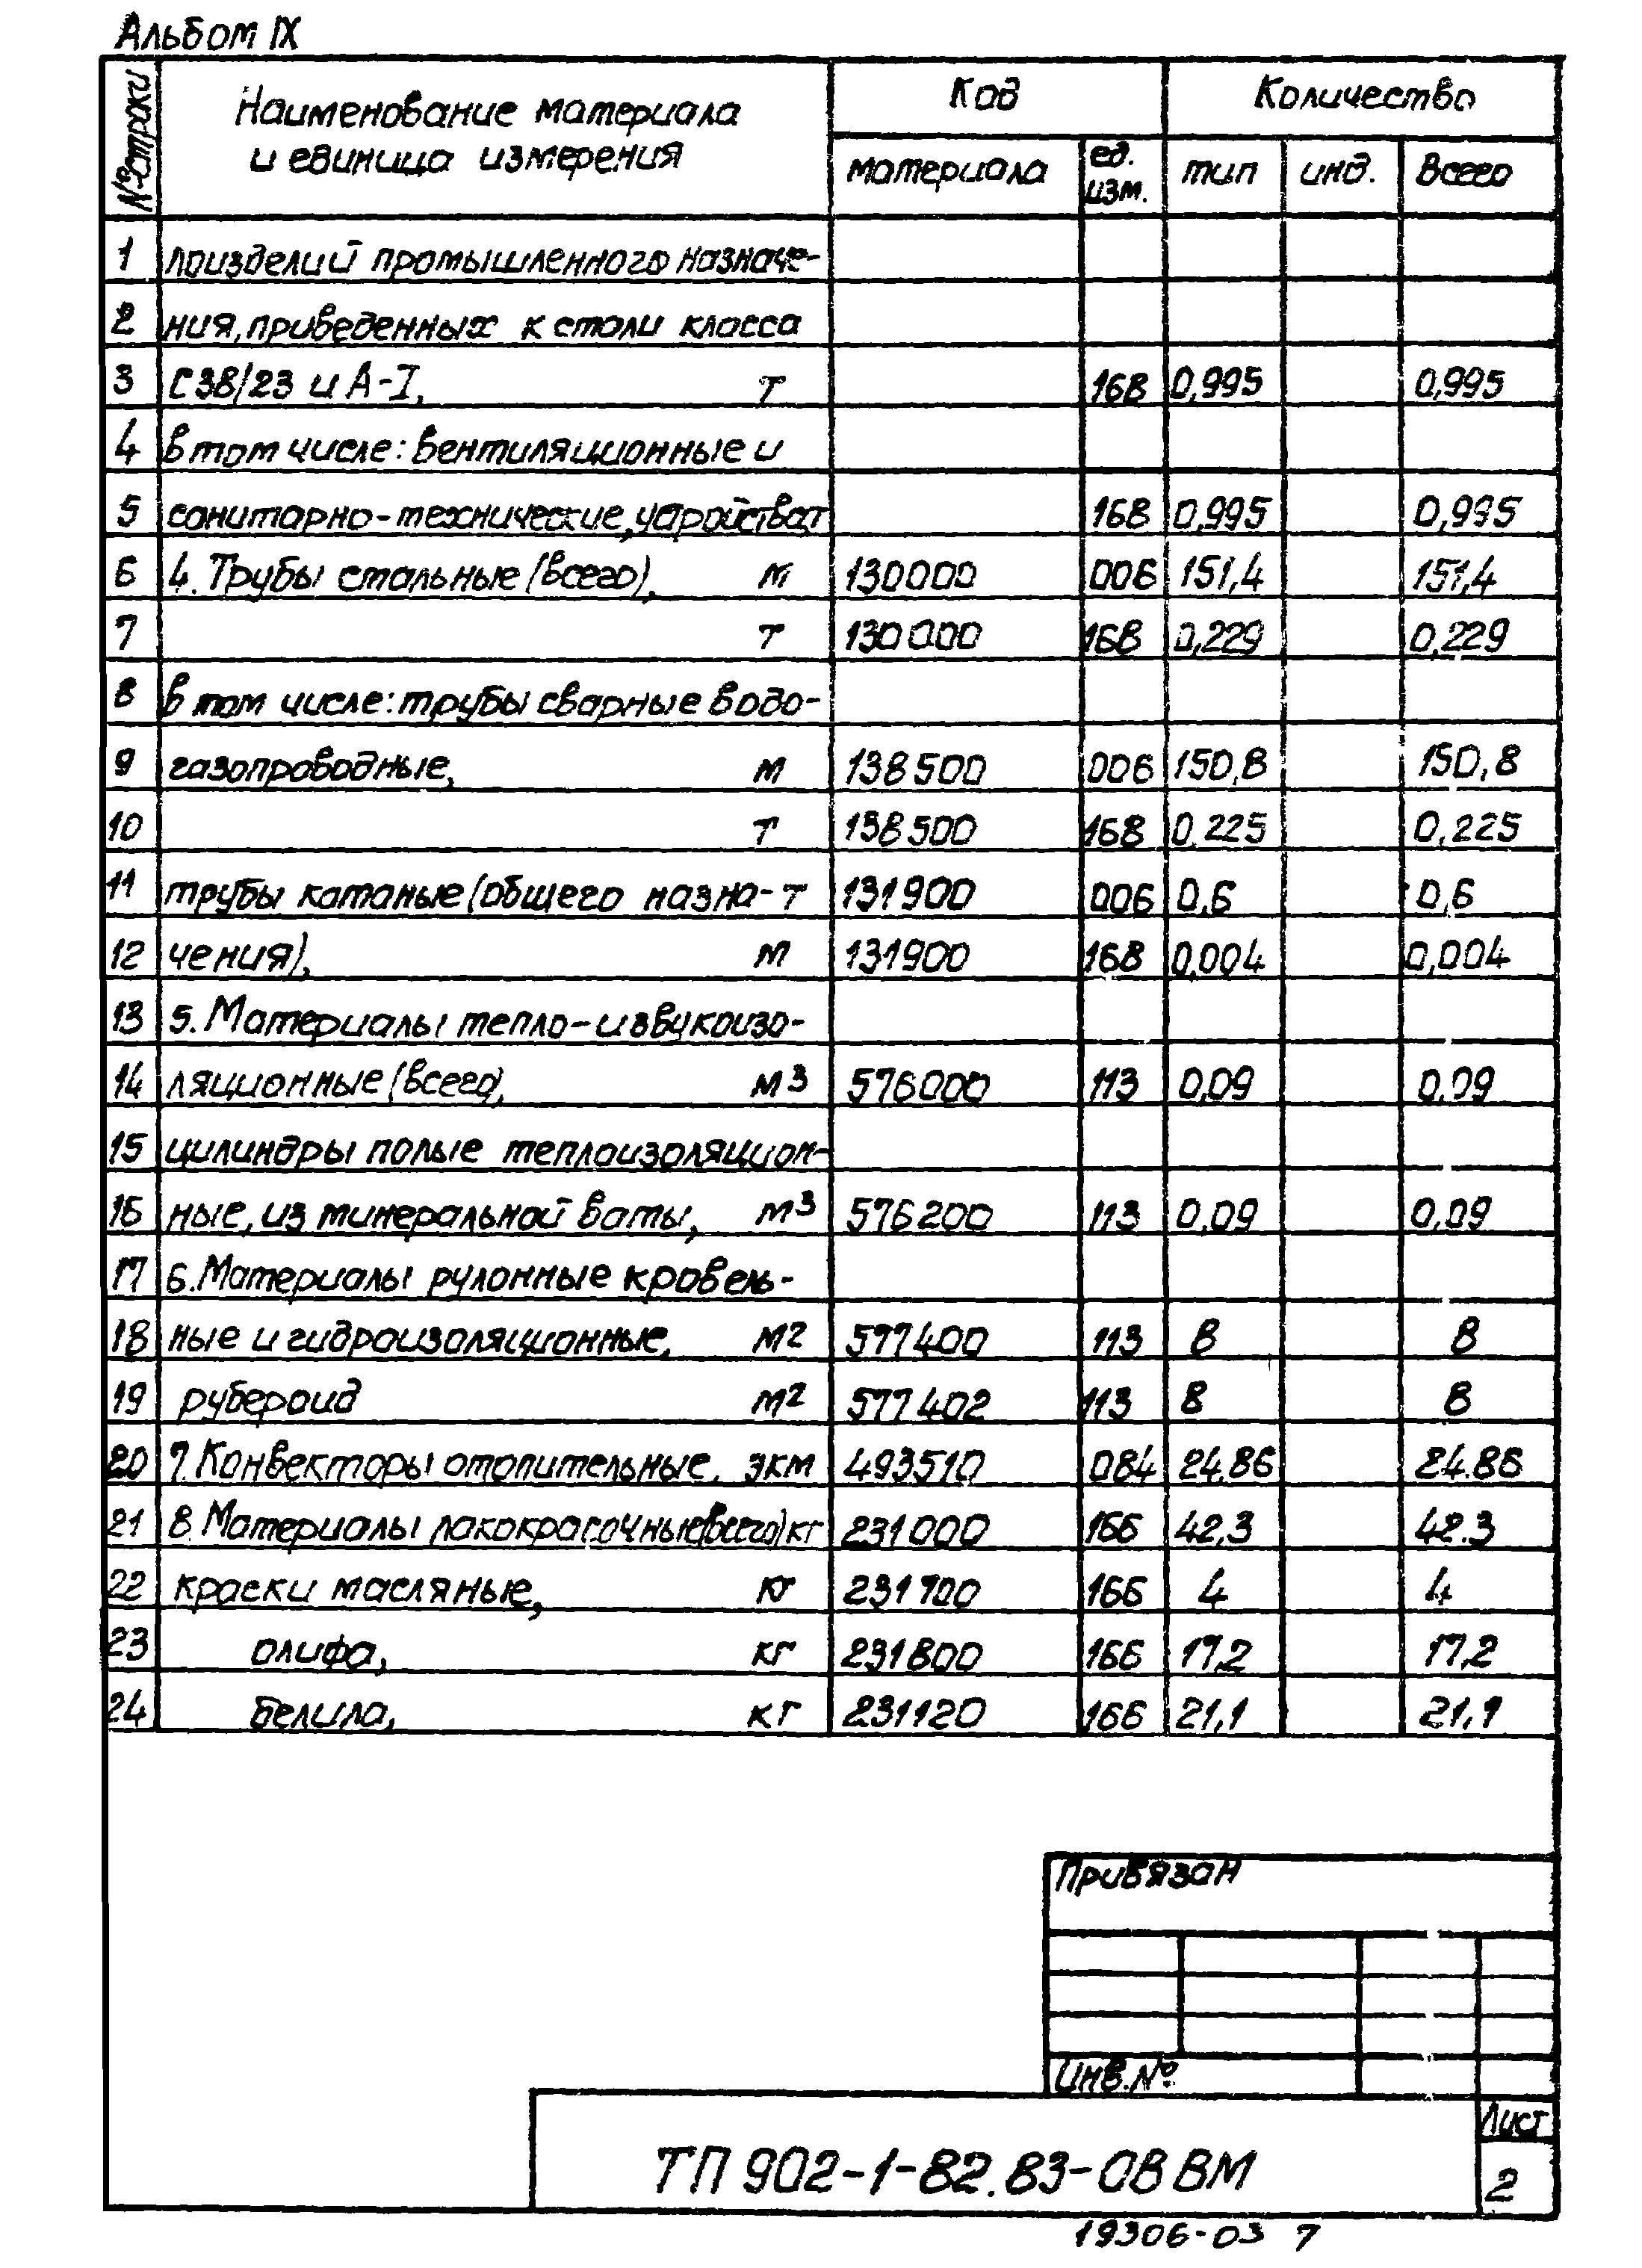 Альбом IX
№ строки
Наименование материала
и единица измерения
Код
Количество
материала
ед.
изм.
тип
инд.
Всего
1 поизделий промышленного назначе-
2 ния, приведенных к стали класса
3 С38/23 и А-I, т 168 0,995 0,995
4 в том числе: вентиляционные и
5 санитарно-технические, устройства, т 168 0,995 0,995
6 4. Трубы стальные (всего), м 130000 006 151,4 151,4
7 т 130000 168 0,229 0,229
8 в том числе: трубы сварные водо-
9 газопроводные, м 138500 006 150,8 150,8
10 т 138500 168 0,225 0,225
11 трубы катаные (общего назна- т 131900 006 0,6 0,6
12 чения), м 131900 168 0,004 0,004
13 5. Материалы тепло- и звукоизо-
14 ляционные (всего), м3 576000 113 0,09 0,09
15 цилиндры полые теплоизоляцион-
16 ные, из минеральной ваты, м3 576200 113 0,09 0,09
17 6. Материалы рулонные кровель-
18 ные и гидроизоляционные, м2 577400 113 8 8
19 рубероид м2 577402 113 8 8
20 7. Конвекторы отопительные, экм 493510 084 24,86 24.86
21 8. Материалы лакокрасочные (всего) кг 231000 166 42,3 42.3
22 краски масляные, кг 231700 166 4 4
23 олифа, кг 231800 166 17,2 17,2
24 белила, кг 231120 166 21,1 21,1
Привязан
Инв. №
Лист
ТП 902-1-82.83-ОВ ВМ
2
19306-03 7